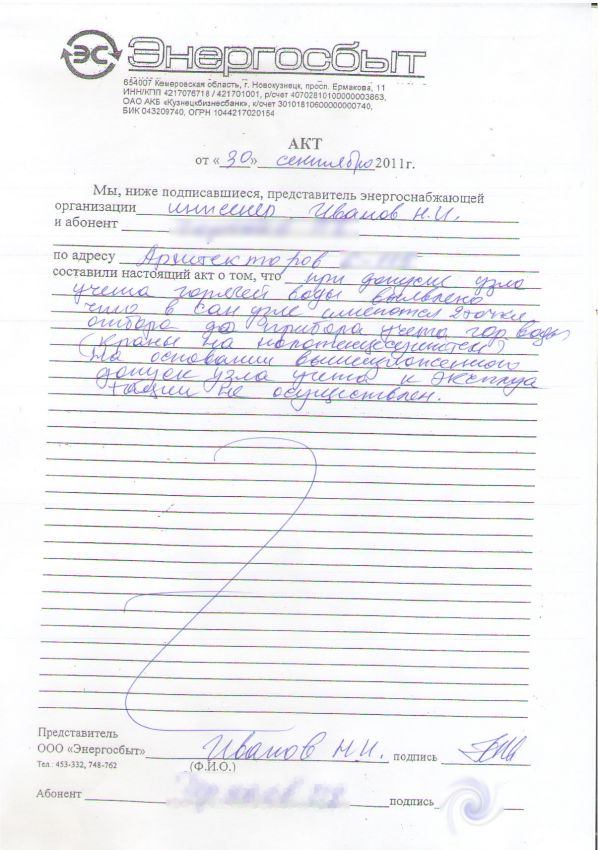 ЭС Энергосбыт
654007 Кемеровская область, г. Новокузнецк, просп. Ермакова, 11
ИНН/КПП 4217076718 / 421701001, р/счет 40702810100000003863,
ОАО АКБ «Кузнецкбизнесбанк», к/счет 30101810600000000740,
БИК 043209740, ОГРН 1044217020154
АКТ
от «30» сентября 2011г.
Мы, ниже подписавшиеся, представитель энергоснабжающей
организации инженер Иванов Н.И.
и абонент
по адресу Архитекторов
составили настоящий акт о том, что при допуске узла
учета горячей воды выявлено
что в сан узле имеются 2 точки
отбора до прибора учета гор воды
(краны на полотенцесушителе)
На основании вышеизложенного
допуск узла учета к эксплуа
тации не осуществлен.
Представитель
ООО «Энергосбыт» Иванов Н.И. подпись
Тел. 453-332, 748-762 (Ф.И.О.)
Абонент подпись